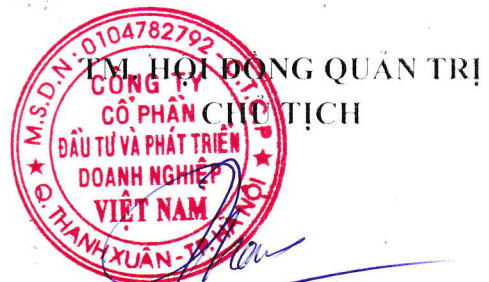 TM. HỘI ĐỒNG QUẢN TRỊ
CHỦ TỊCH
M.S.D.N: 0104782792 - C.T.C.P
CÔNG TY
CỔ PHẦN
ĐẦU TƯ VÀ PHÁT TRIỂN
DOANH NGHIỆP
VIỆT NAM
Q. THANH XUÂN - TP. HÀ NỘI